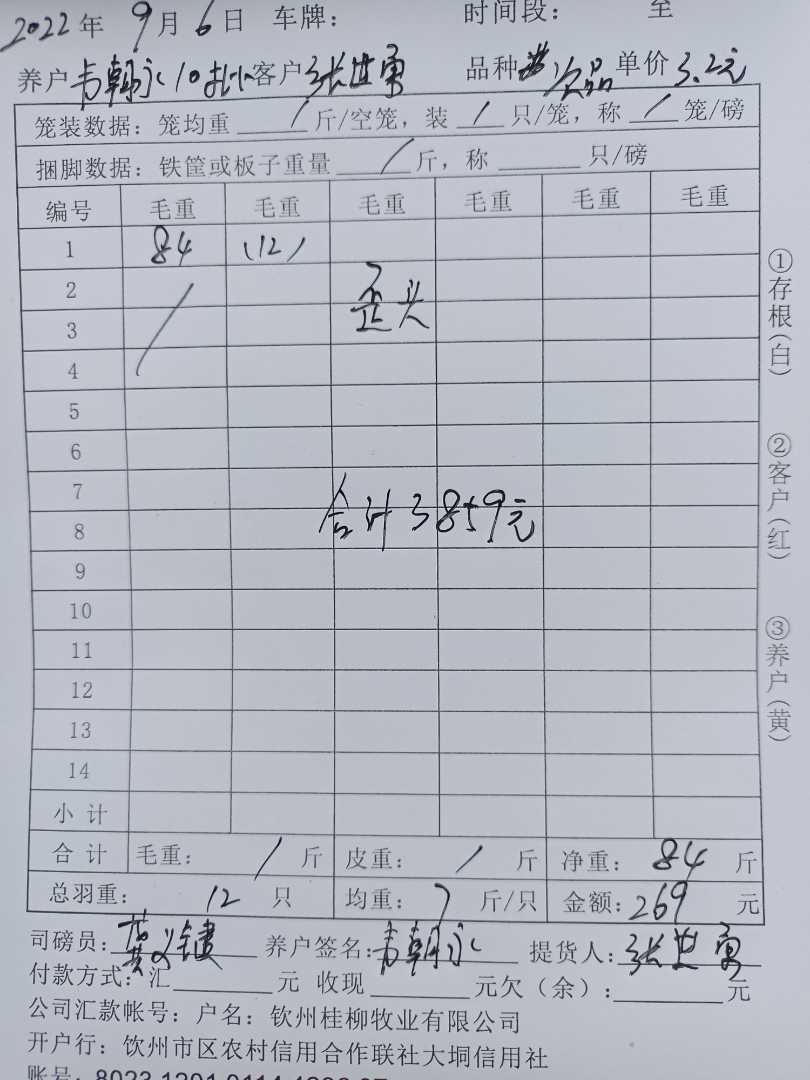 2022年 9月6日 车牌: 时间段: 至
养户韦朝永 客户张世勇 品种 次品 单价3.2元
笼装数据: 笼均重 / 斤/空笼, 装 / 只/笼, 称 / 笼/磅
捆脚数据: 铁筐或板子重量 / 斤, 称 只/磅
编号 毛重 毛重 毛重 毛重 毛重 毛重
1 84 (12)
2 歪头
3
4
5
6
7
合计3859元
8
9
10
11
12
13
14
小计
合计 毛重: / 斤 皮重: / 斤 净重: 84 斤
总羽重: 12 只 均重: 7 斤/只 金额: 269 元
司磅员: 养户签名: 韦朝永 提货人: 张世勇
付款方式: 汇 元 收现 元欠(余): 元
公司汇款帐号: 户名: 钦州桂柳牧业有限公司
开户行: 钦州市区农村信用合作联社大垌信用社
账号:
①存根(白)
②客户(红)
③养户(黄)